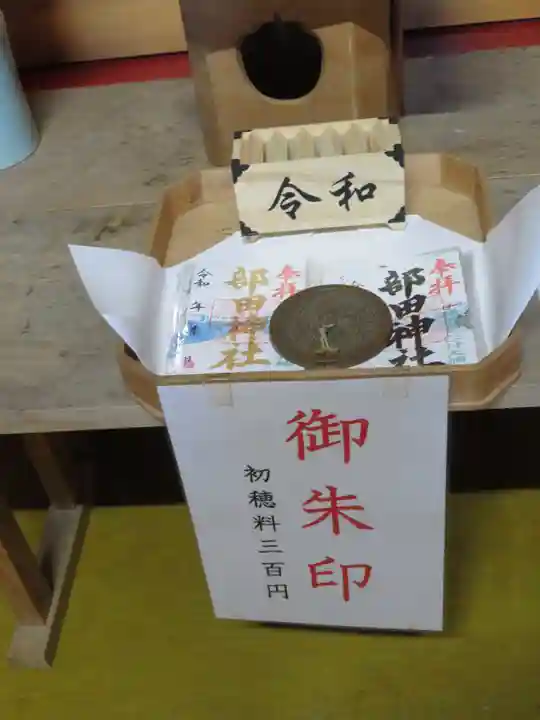 令和
奉拝
部田神社
令和 年 月
奉拝
部田神社
御朱印
初穂料三百円